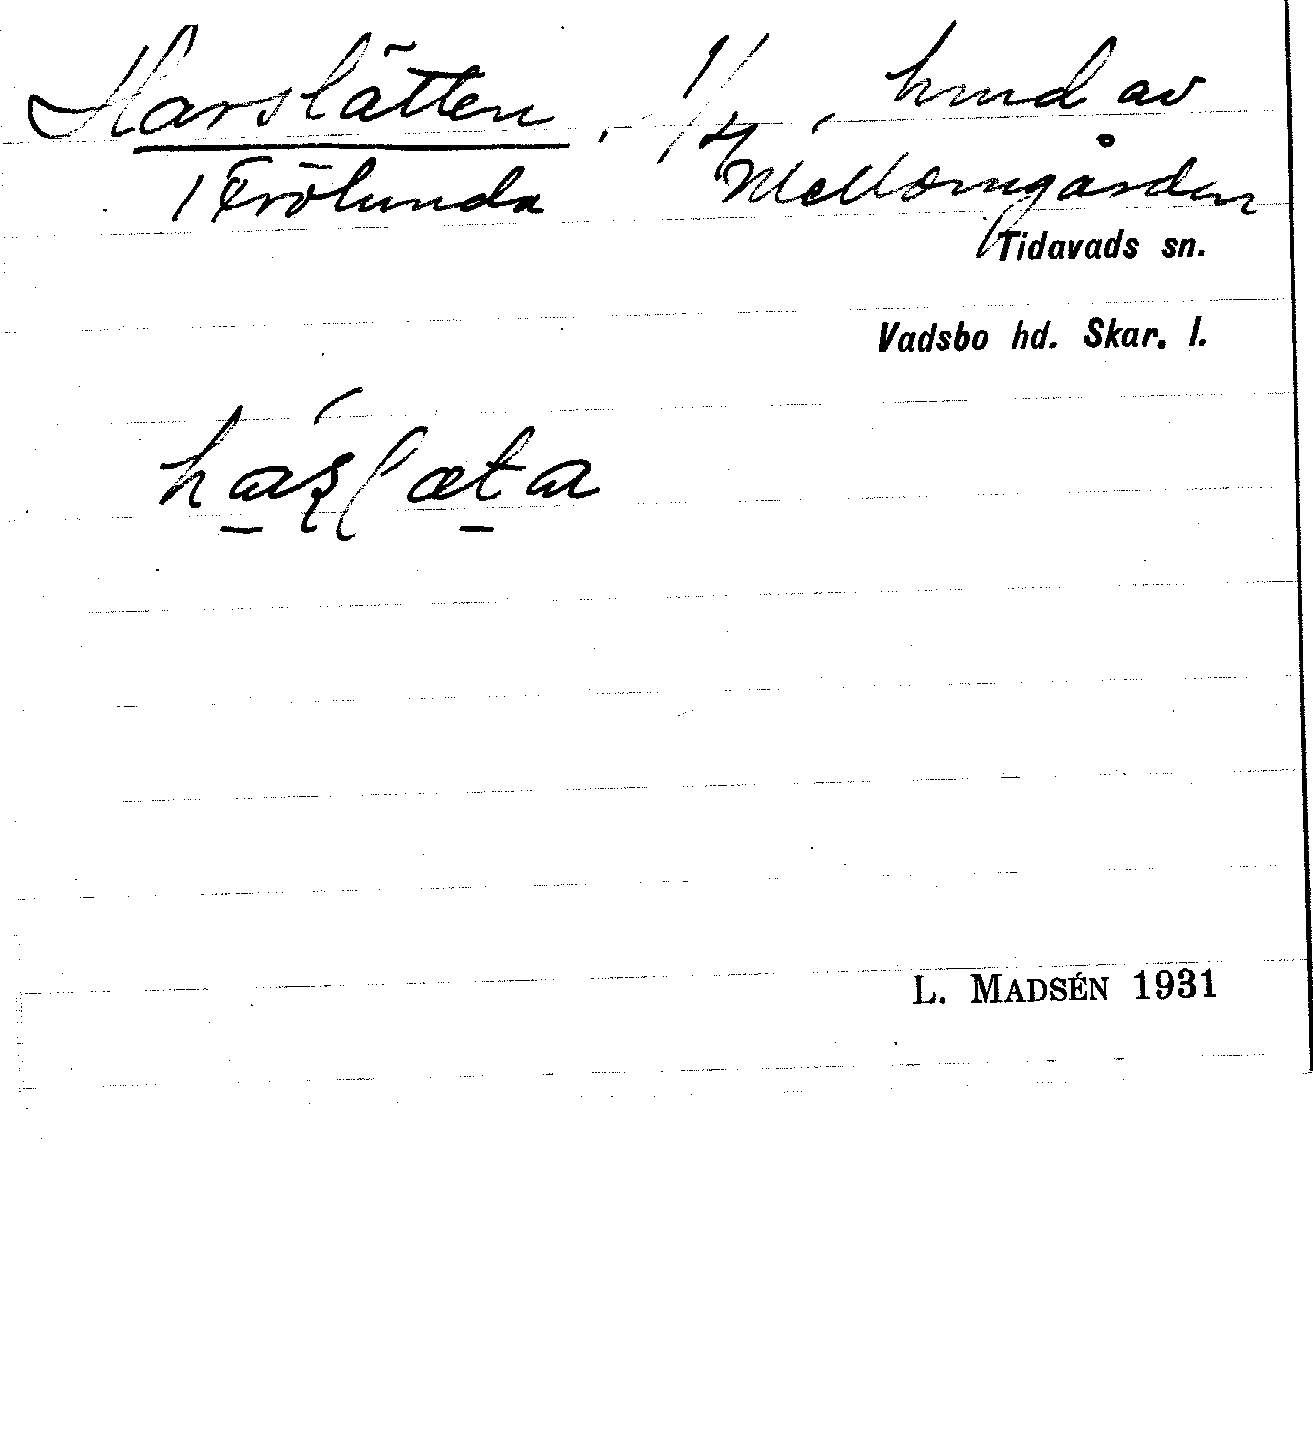 Harslätten, 1/4, hmd av
/ Frölunda Mellomgården
Tidavads sn.
Vadsbo hd. Skar. l.
L. MADSÉN 1931